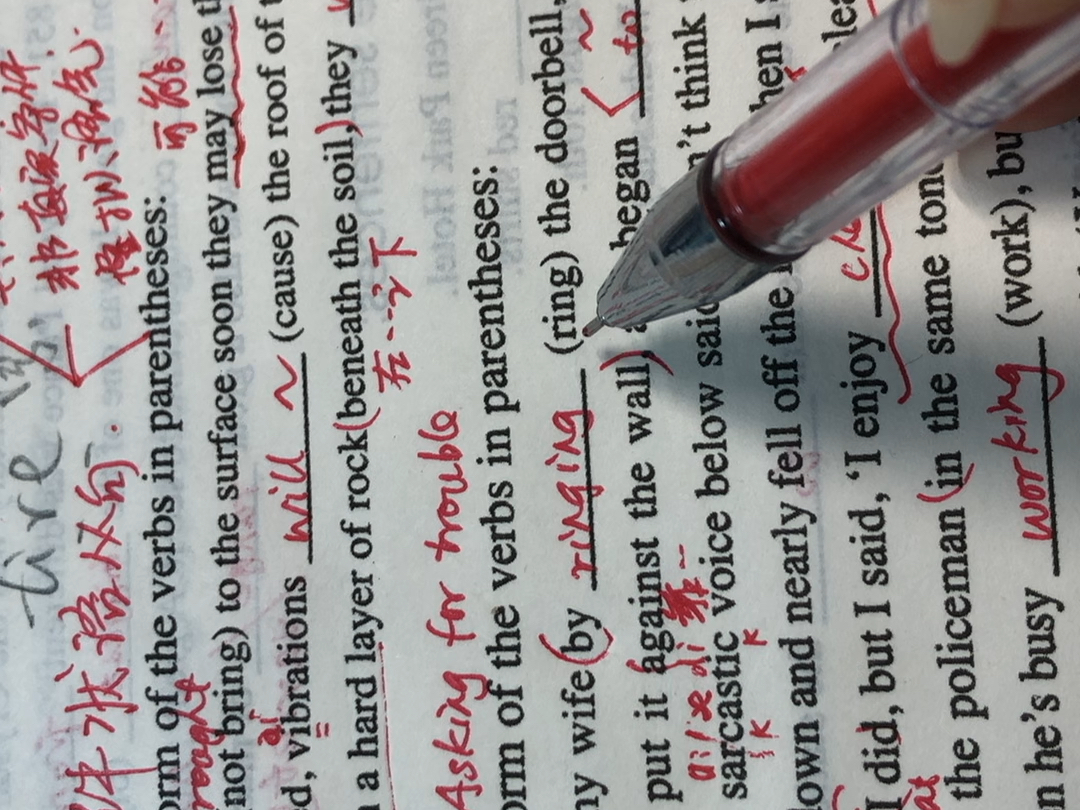 tire
件状语从句.
非真实条件
虚拟语气.
orm of the verbs in parentheses:
可能
brought
not bring) to the surface soon they may lose t
d, vibrations will ~ (cause) the roof of t
a hard layer of rock (beneath the soil,) they
在...之下
Asking for trouble
orm of the verbs in parentheses:
ny wife (by ringing (ring) the doorbell,
put it (against the wall), began to ~
靠--
sarcastic voice below said n't think
own and nearly fell off the hen I
I did, but I said, 'I enjoy lea
at
the policeman (in the same ton
n he's busy working (work), bu